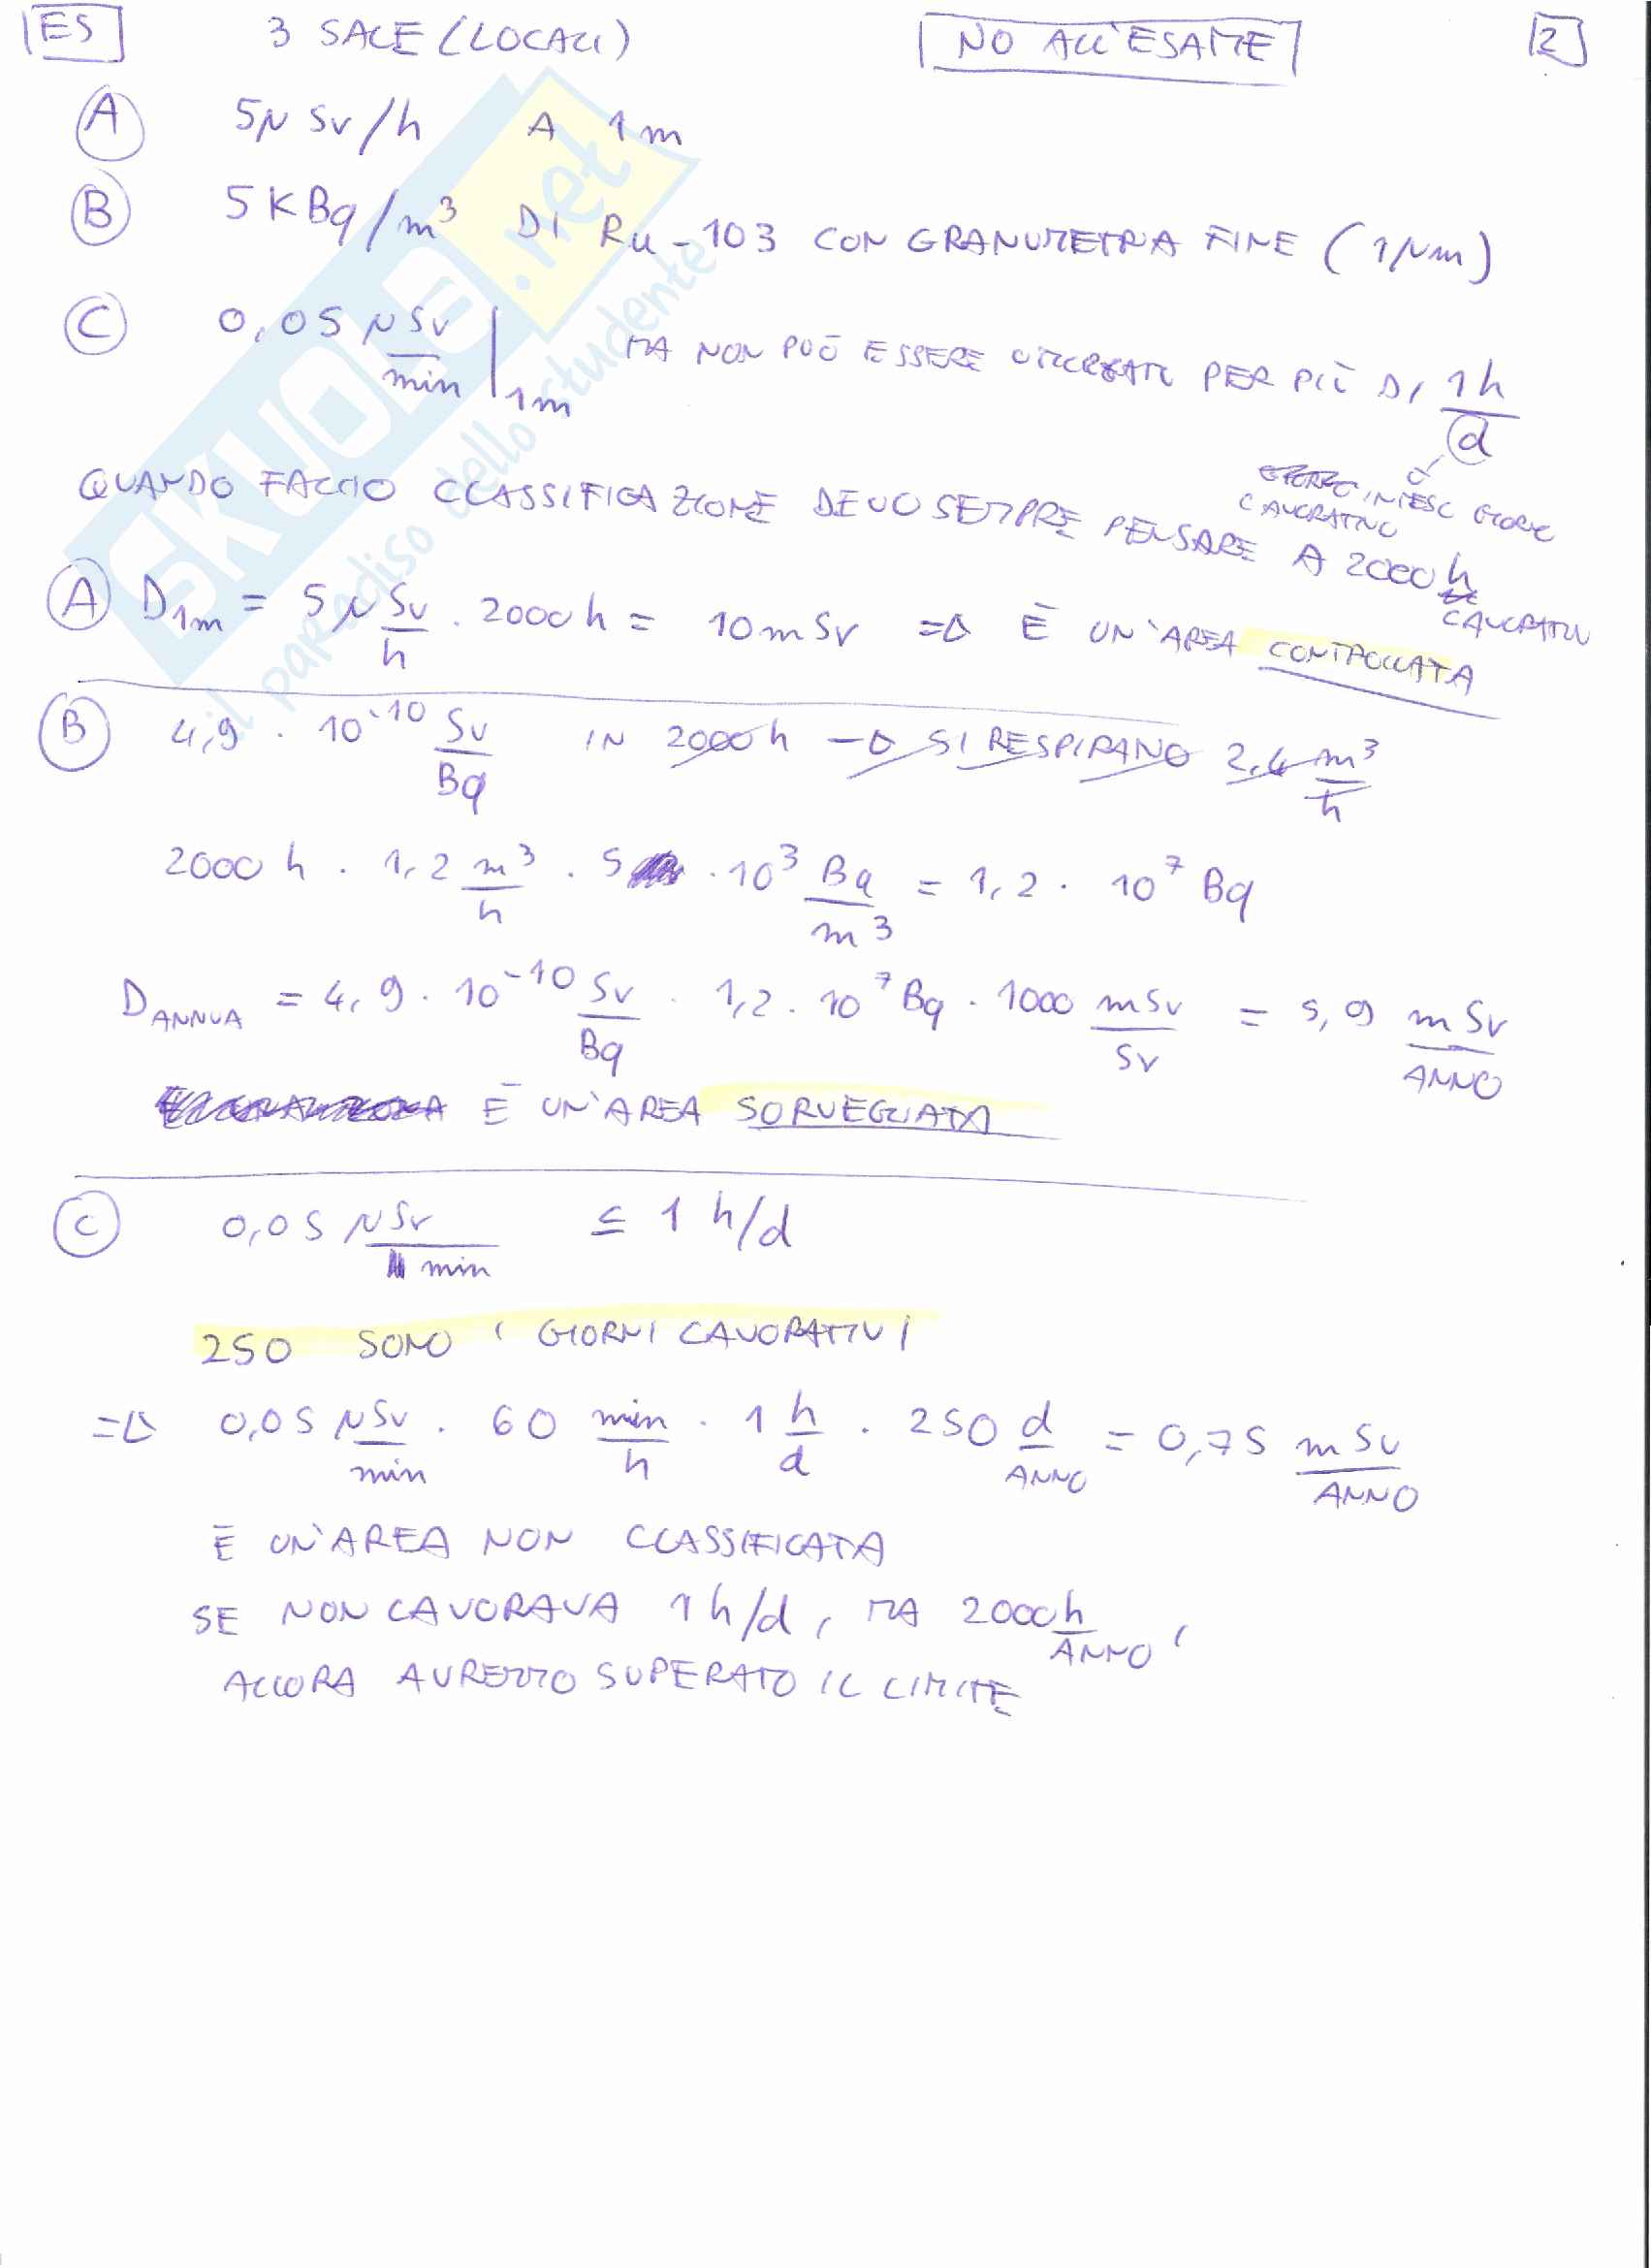 ES 3 SALE (LOCALI) NO ALL'ESAME 2
A 5μSv/h A 1m
B 5KBq/m³ DI Ru-103 CON GRANULOMETRIA FINE (1μm)
C 0,05 μSv/min |1m MA NON PUÒ ESSERE UTILIZZATO PER PIÙ DI 1h/d
INTESO GIORNO LAVORATIVO
QUANDO FACCIO CLASSIFICAZIONE DEVO SEMPRE PENSARE A 2000 h LAVORATIVI
A D1m = 5 μSv/h · 2000 h = 10 mSv => È UN'AREA CONTROLLATA
B 4,9 · 10⁻¹⁰ Sv/Bq IN 2000 h → SI RESPIRANO 2,4 m³/h
2000 h · 1,2 m³/h · 5 · 10³ Bq/m³ = 1,2 · 10⁷ Bq
D ANNUA = 4,9 · 10⁻¹⁰ Sv/Bq · 1,2 · 10⁷ Bq · 1000 mSv/Sv = 5,9 mSv/ANNO
È UN'AREA SORVEGLIATA
C 0,05 μSv/min ≤ 1 h/d
250 SONO I GIORNI LAVORATIVI
=> 0,05 μSv/min · 60 min/h · 1 h/d · 250 d/ANNO = 0,75 mSv/ANNO
È UN'AREA NON CLASSIFICATA
SE NON LAVORAVA 1 h/d, MA 2000 h/ANNO,
ALLORA AVREMMO SUPERATO IL LIMITE
SKUOLA.net
il paradiso dello studente